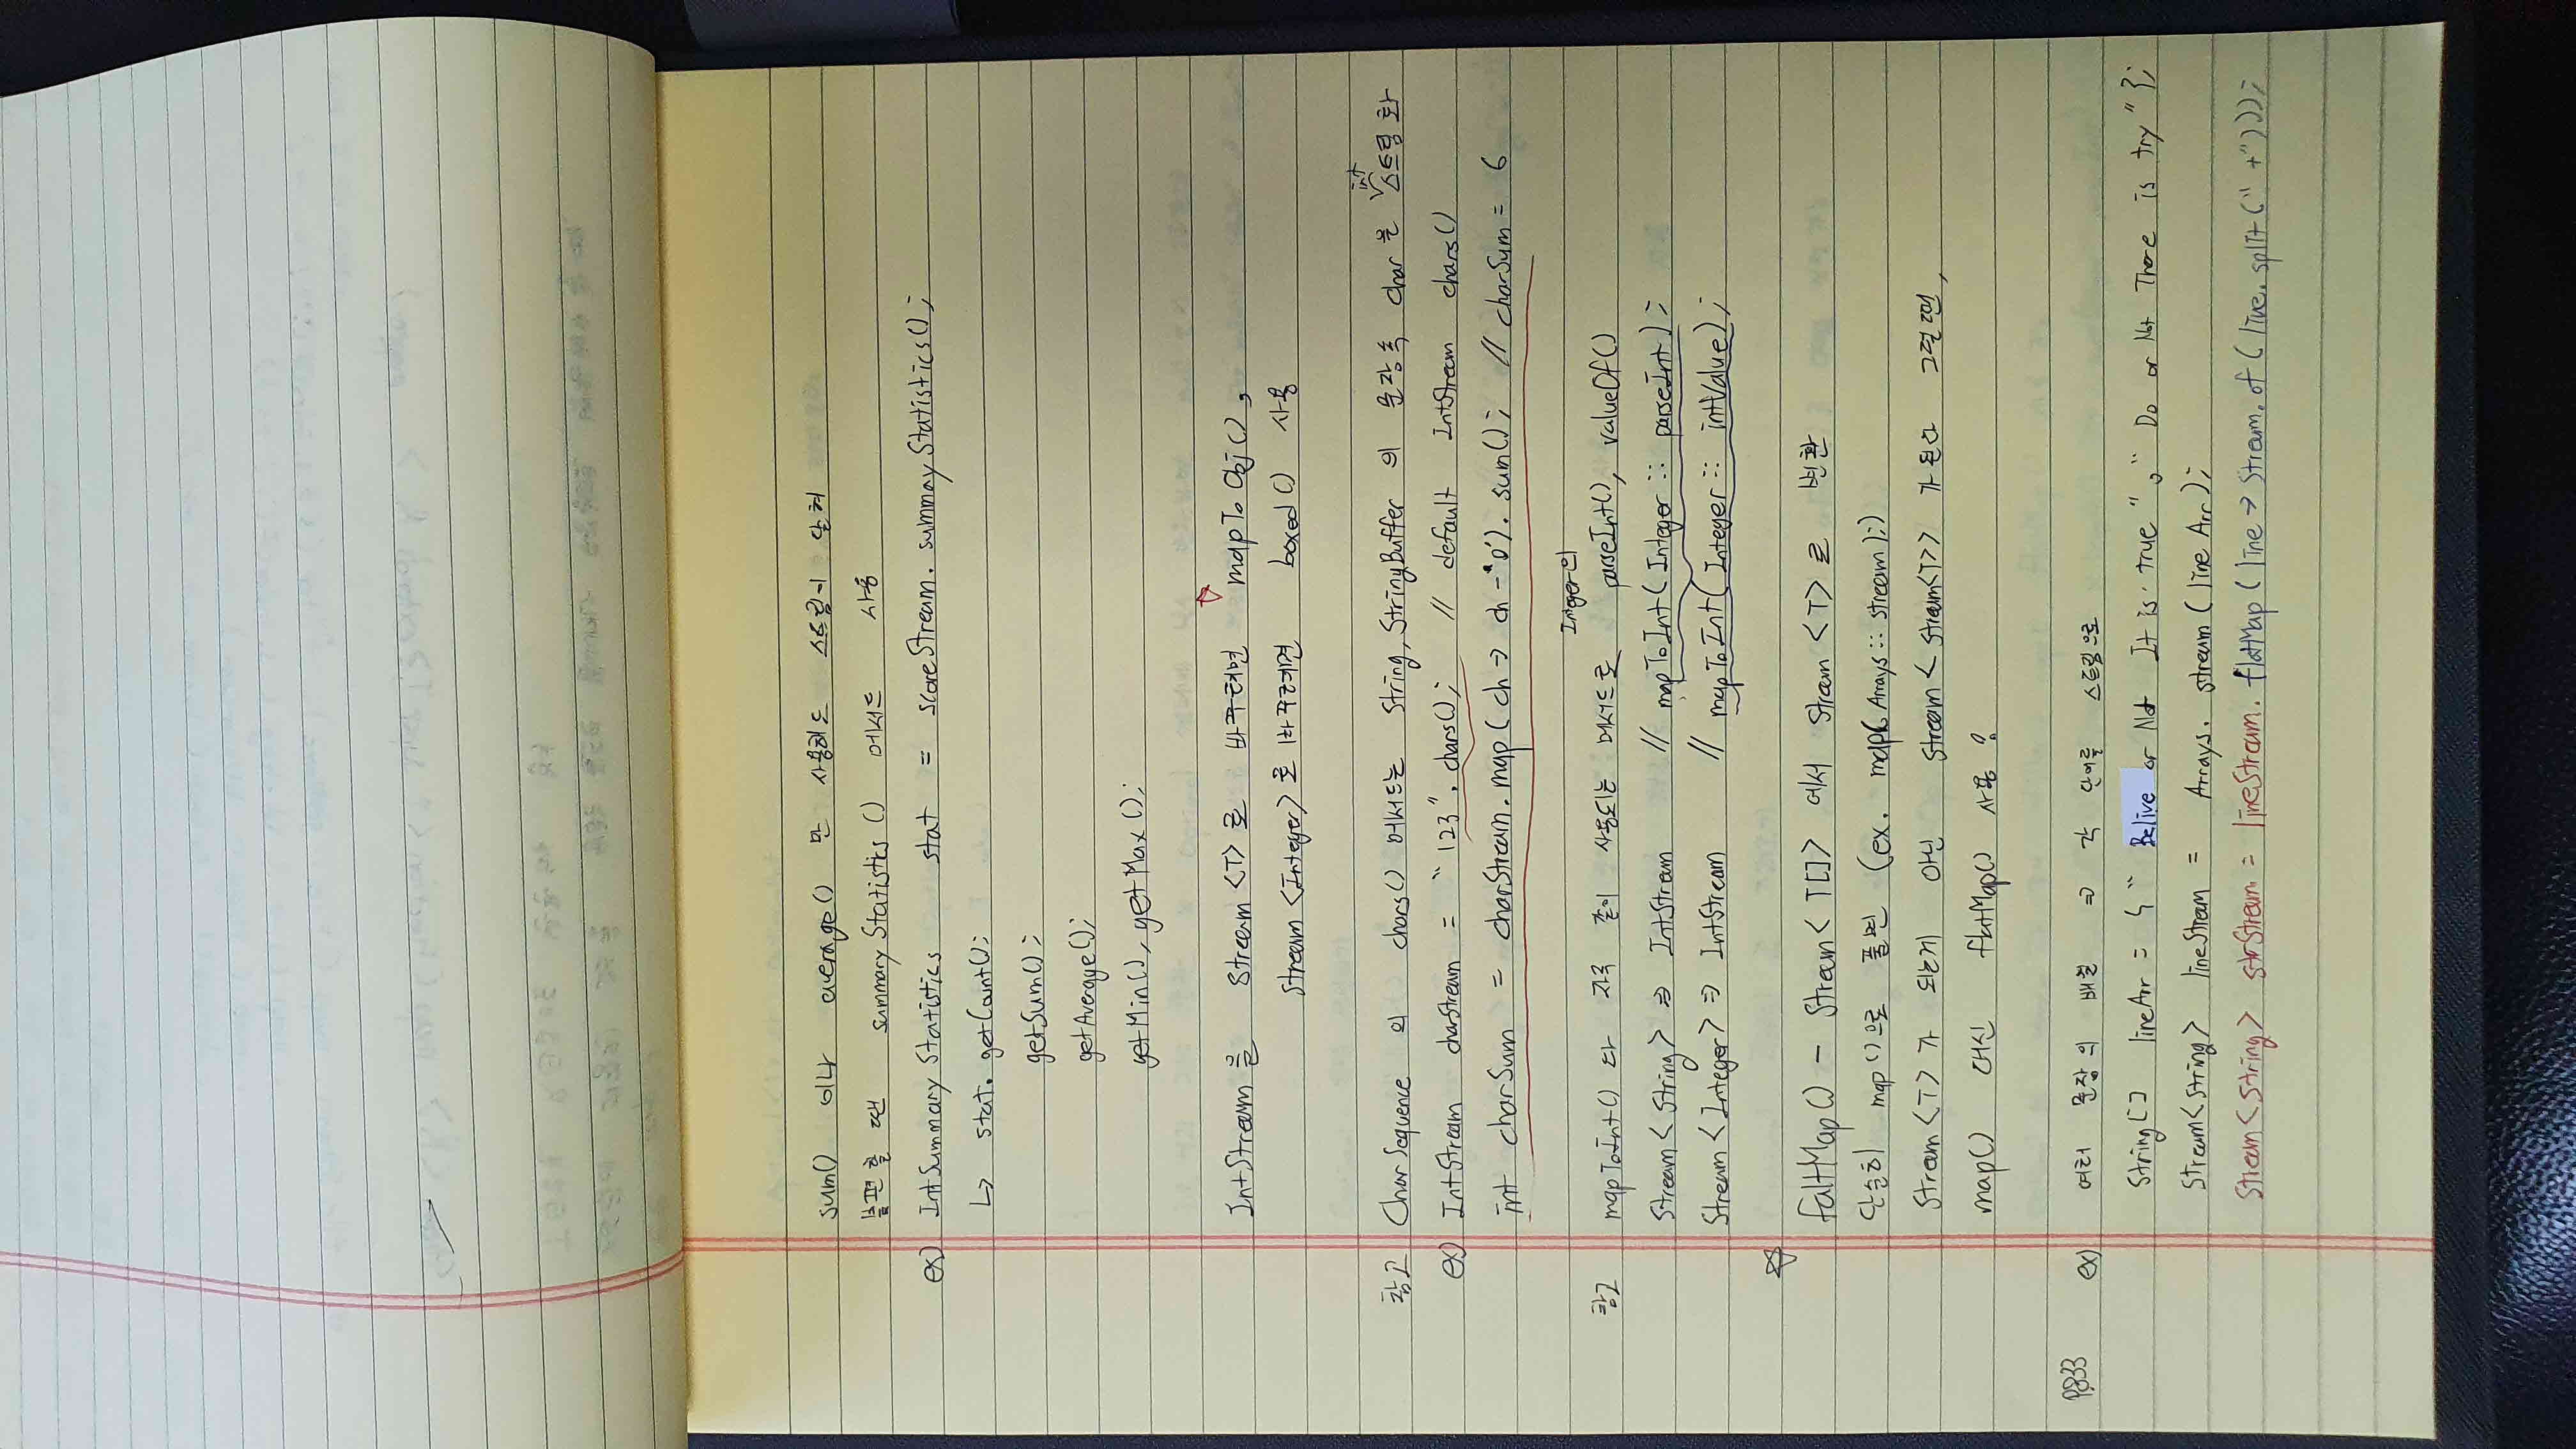 sum() 이나 average() 만 사용해도 스트림이 닫혀
불편할 땐 summaryStatistics() 메서드 사용
ex) IntSummaryStatistics stat = scoreStream.summayStatistics();
↳ stat.getCount();
getSum();
getAverage();
getMin(), getMax();
IntStream을 Stream<T>로 바꾸려면 ☆ mapToObj(),
Stream<Integer>로 바꾸려면 boxed() 사용
int
참고 CharSequence 의 chars() 메서드는 String, StringBuffer 의 문장 속 char을 ∨스트림화
ex) IntStream charStream = "123".chars(); // default IntStream chars()
int charSum = charStream.map(ch → ch-'0').sum(); // charSum = 6
Integer의
참고 mapToInt() 와 자주 같이 사용되는 메서드로 parseInt(), valueOf()
Stream<String> ⇒ IntStream // mapToInt(Integer::parseInt);
Stream<Integer> ⇒ IntStream // mapToInt(Integer::intValue);
☆
faltMap() - Stream<T[]> 에서 Stream<T>로 변환
단순히 map()으로 풀면 (ex. map(Arrays::stream);)
Stream<T>가 되는게 아닌 Stream<Stream<T>>가 된다 그럴땐,
map() 대신 flatMap() 사용!
P833 ex) 여러 문장의 배열 ⇒ 각 단어를 스트림으로
String[] lineArr = {"Belive or Not It is true", "Do or Not There is try"};
Stream<String> lineStream = Arrays.stream(lineArr);
Stream<String> strStream = lineStream.flatMap(line → Stream.of(line.split(" +")));